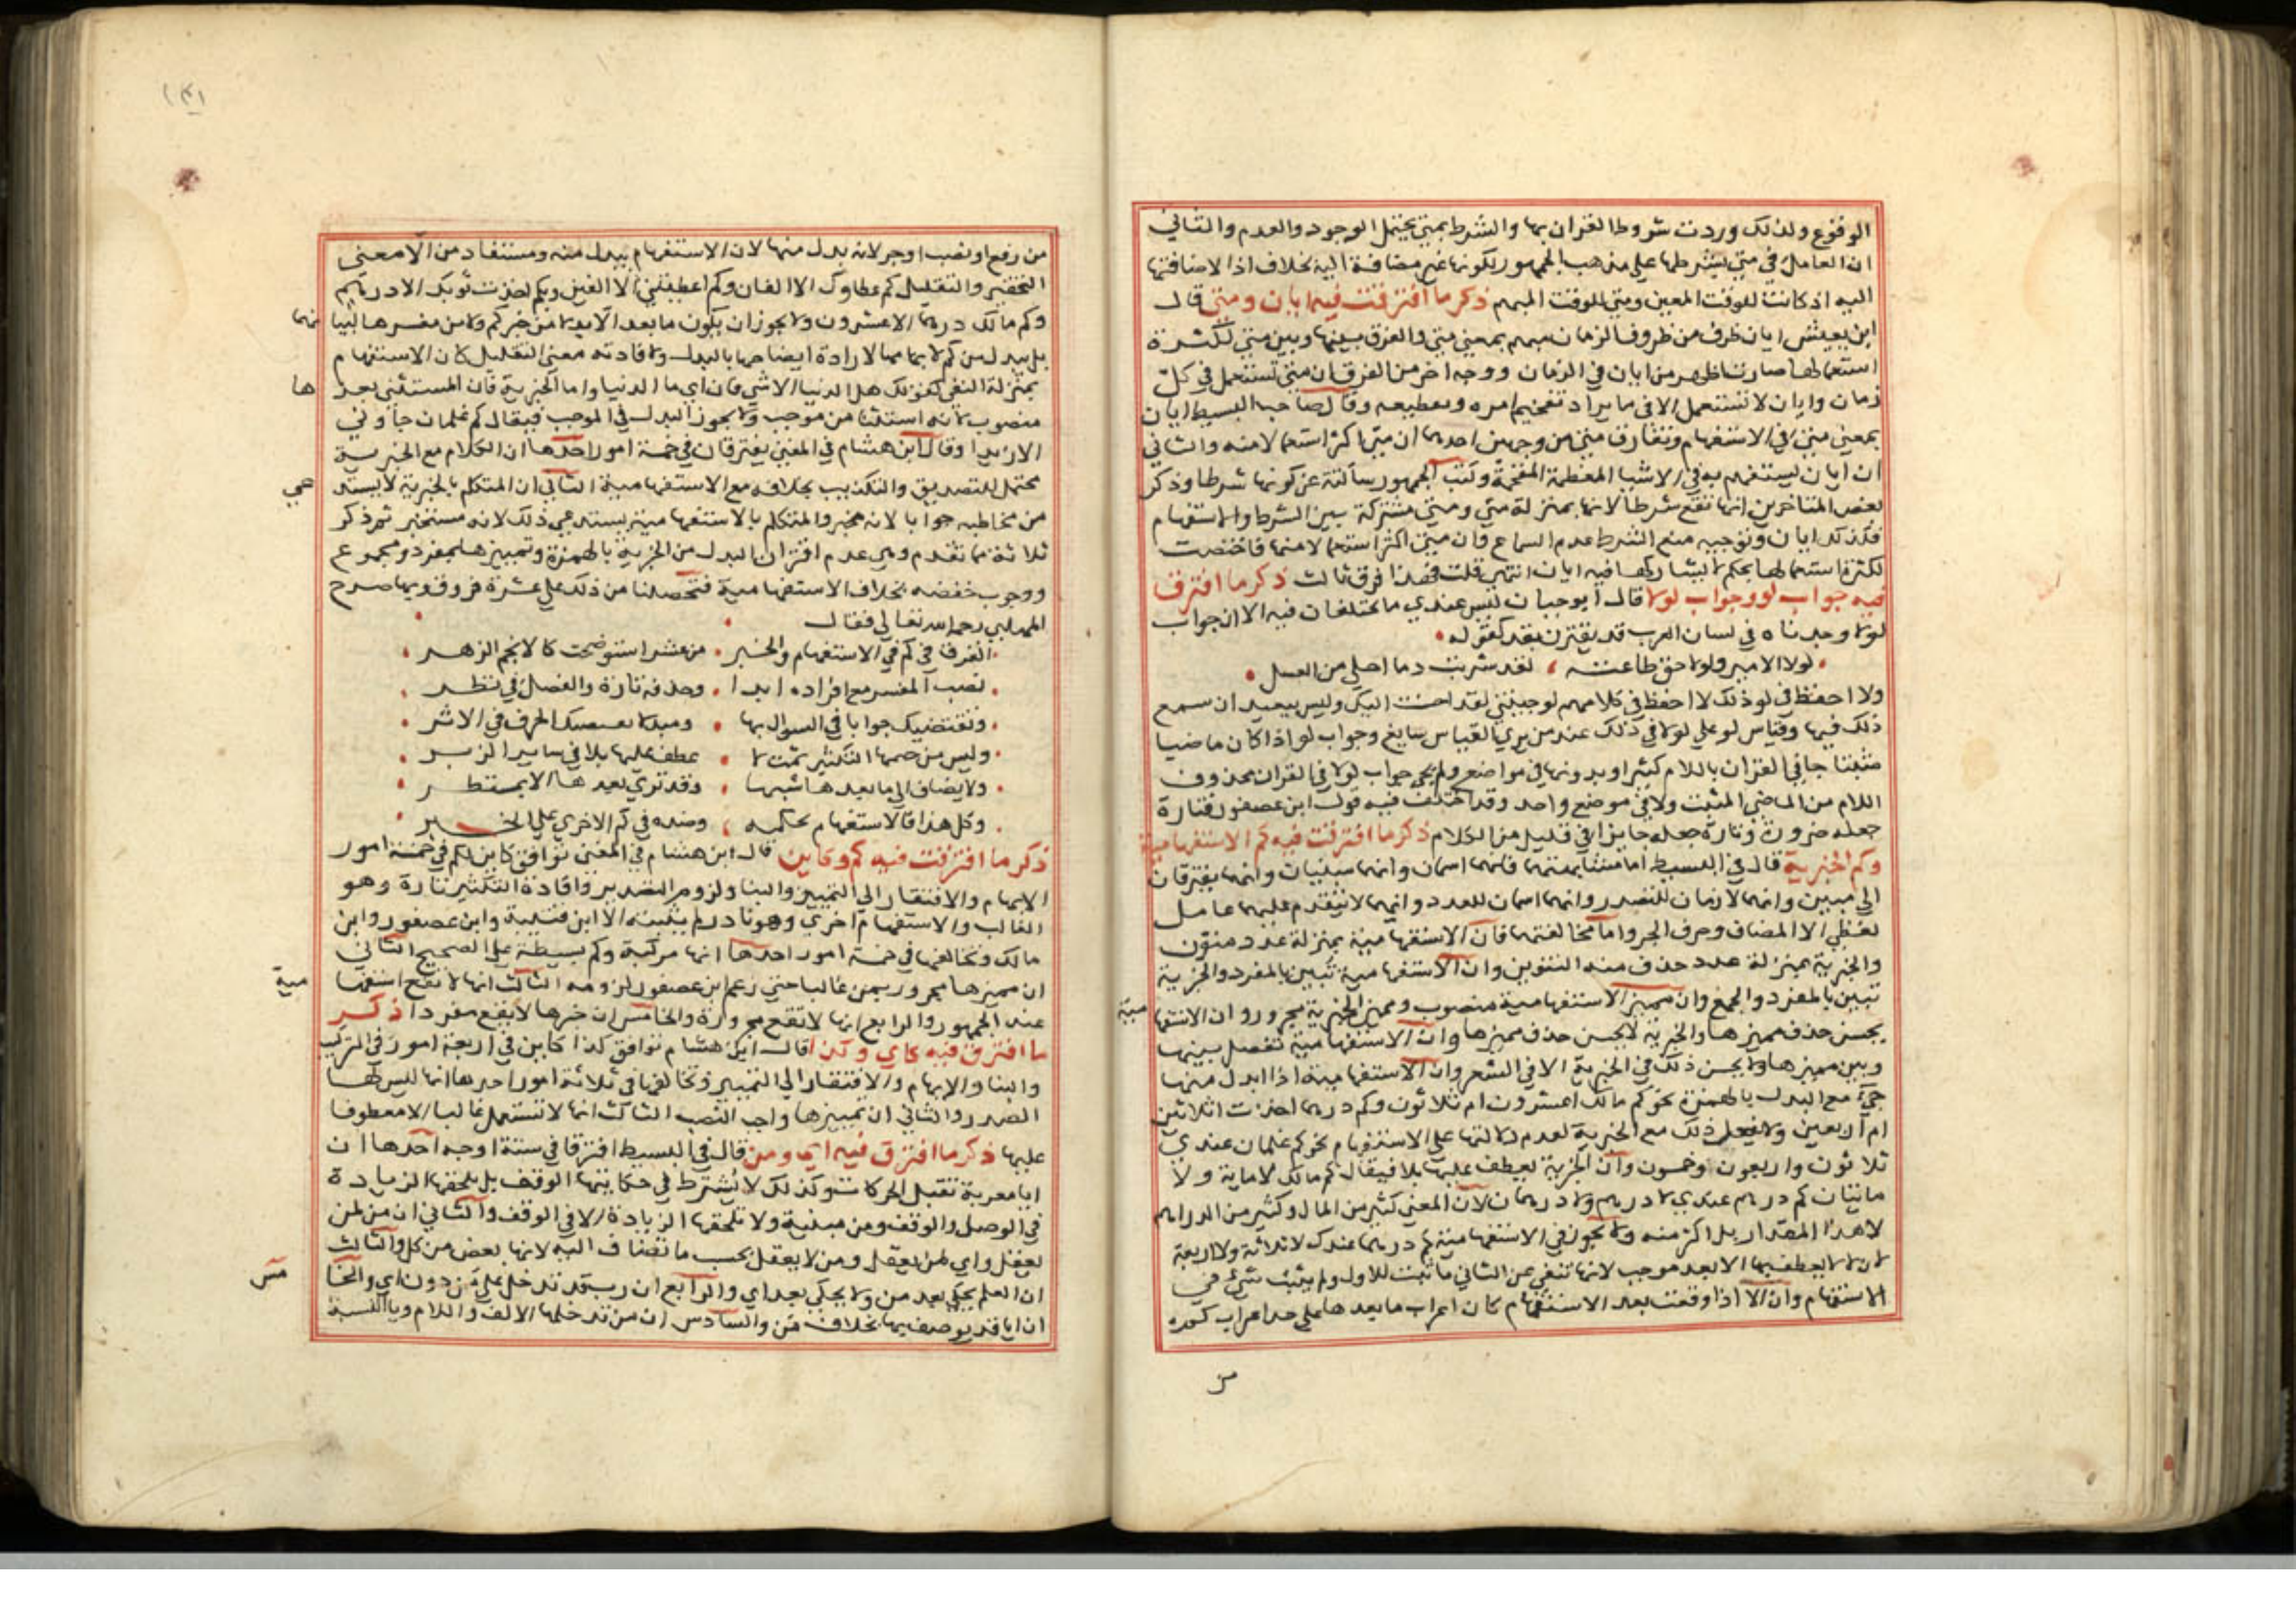 الوقوع ولذلك وردت شروط القران بها والشرط بمتى يحتمل الوجود والعدم والثاني
ان العامل في متى شرطها على مذهب الجمهور لكونها غير مضافة اليه بخلاف اذا لاضافتها
اليه اذ كانت للوقت المعين ومتى للوقت المبهم ذكر ما افترقت فيه ايان ومتى قال
ابن يعيش ايان ظرف من ظروف الزمان مبهم بمعنى متى والفرق بينها وبين متى لكثرة
استعمالها صارت اظهر من ايان في الزمان ووجه اخر من الفرق ان متى تستعمل في كل
زمان وايان لا تستعمل الا في ما يراد تفخيم امره وتعظيمه وقال صاحب البسيط ايان
بمعنى متى في الاستفهام وتفارق متى من وجهين احدهما ان متى اكثر استعمالا منه والثاني
ان ايان يستفهم به في الاشيا المعظمة المفخمة وكتب الجمهور ساكتة عن كونها شرطا وذكر
بعض المتاخرين انها تقع شرطا لانها بمنزلة متى ومتى مشتركة بين الشرط والاستفهام
فكذلك ايان وتوجيه منع الشرط عدم السماع فان متى اكثر استعمالا منها فاختصت
لكثرة استعمالها بحكم لا تشاركها فيه ايان انتهى قلت فهذا فرق ثالث ذكر ما افترق
فيه جواب لو وجواب لولا قال ابو حيان ليس عندي ما يختلفان فيه الا ان جواب
لولا وجدناه في لسان العرب قد يقترن بقد كقوله
لولا الامير ولولا حق طاعته لقد شربت دما احلى من العسل
ولا احفظ في لو ذلك لا احفظ في كلامهم لو جيتني لقد احسنت اليك وليس ببعيد ان سمع
ذلك فيها وقياس لو على لولا في ذلك عند من يرى القياس سايغ وجواب لو اذا كان ماضيا
مثبتا جا في القران باللام كثيرا وبدونها في مواضع ولم يجي جواب لولا في القران محذوف
اللام من الماضي المثبت ولا في موضع واحد وقد اختلف فيه قول ابن عصفور فتارة
جعله ضرورة وتارة جعله جايزا في قليل من الكلام ذكر ما افترقت فيه كم الاستفهامية
وكم الخبرية قال في البسيط اما مشابهتهما فانهما اسمان وانهما مبنيان وانهما يفتقران
الى مبين وانهما لازمان للتصدر وانهما اسمان للعدد وانهما لا يتقدم عليهما عامل
لفظي الا المضاف وحرف الجر واما مخالفتهما فان الاستفهامية بمنزلة عدد منون
والخبرية بمنزلة عدد حذف منه التنوين وان الاستفهامية تبين بالمفرد والخبرية
تبين بالمفرد والجمع وان مميز الاستفهامية منصوب ومميز الخبرية مجرور وان الاستفها
مية
يحسن حذف مميزها والخبرية لا يحسن حذف مميزها وان الاستفهامية تفصل بينها
وبين مميزها ولا يحسن ذلك في الخبرية الا في الشعر وان الاستفهامية اذا ابدل منها
جيء مع البدل بالهمزة نحو كم مالك اعشرون ام ثلاثون وكم درهما اخذت اثلاثين
ام اربعين ولا يفعل ذلك مع الخبرية لعدم دلالتها على الاستفهام نحو كم غلمان عندي
ثلاثون واربعون وخمسون وان الخبرية يعطف عليها بلا فيقال كم مالك لا ماية ولا
مايتان كم درهم عندي لا درهم ولا درهمان لان المعنى كثير من المال وكثير من الدراهم
لا هذا المقدار بل اكثر منه ولا يجوز في الاستفهامية كم درهما عندك لا ثلاثة ولا اربعة
لان لا لا يعطف بها الا بعد موجب لانها تنفي عن الثاني ما ثبت للاول ولم يثبت شيء في
الاستفهام وان الا اذا وقعت بعد الاستفهام كان اعراب ما بعدها على حد اعراب كم
من
من رفع او نصب او جر لانه بدل منها لان الاستفهام يبدل منه ومستفاد من الا معنى
التحقير والتقليل كم عطاوك الا الفان وكم اعطيتني الا الفين وبكم اخذت ثوبك الا درهم
وكم مالك درهما الا عشرون ولا يجوز ان يكون ما بعد الا بدلا من خبر كم ولا من مفسرها لبيا
نهما
بل يبدل من كم لابهامها لارادة ايضاحها بالبدل ولافادته معنى التقليل كان الاستفهام
بمنزلة النفي كقولك هل الدنيا الا شي فان اي ما الدنيا واما الخبرية فان المستثنى بعد
ها
منصوب لانه استثنا من موجب ولا يجوز البدل في الموجب فيقال كم غلمان جاؤني
الا زيدا وقال ابن هشام في المغني يفترقان في خمسة امور احدها ان الكلام مع الخبرية
محتمل للتصديق والتكذيب بخلافه مع الاستفهامية الثاني ان المتكلم بالخبرية لا يستد
عي
من مخاطبه جوابا لانه مخبر والمتكلم بالاستفهامية يستدعي ذلك لانه مستخبر ثم ذكر
ثلاثة مما تقدم وهي عدم اقتران البدل من الخبرية بالهمزة وتمييزها بمفرد ومجموع
ووجوب خفضه بخلاف الاستفهامية فتحصلنا من ذلك على عشرة فروق وبها صرح
المهلبي رحمه الله تعالى فقال
الفرق في كم في الاستفهام والخبر من عشر استوضحت كالانجم الزهر
نصب المفسر مع افراده ابدا وحذفه تارة والفصل في نظر
وتقتضيك جوابا في السوال بها ومبدلا الحرف في الاثر
وليس من ضمها التكثير ثمت لا عطف عليها بلا في ساير الزبر
ولا يضاف الى ما بعدها شبها وقد ترى بعدها الا
وكل هذا فالاستفهام يحكمه وضده في كم الاخرى على الخبر
ذكر ما افترقت فيه كم وكاين قال ابن هشام في المغني توافق كاين لكم في خمسة امور
الابهام والافتقار الى التمييز والبنا ولزوم التصدير وافادة التكثير تارة وهو
الغالب والاستفهام اخرى وهو نادر لم يثبته الا ابن قتيبة وابن عصفور وابن
مالك وتخالفها في خمسة امور احدها انها مركبة وكم بسيطة على الصحيح الثاني
ان مميزها مجرور بمن غالبا حتى زعم ابن عصفور لزومه الثالث انها لا تقع استفها
مية
عند الجمهور والرابع انها لا تقع مجرورة والخامس ان خبرها لا يقع مفردا ذكر
ما افترق فيه كاي وكذا قال ابن هشام توافق كذا كاين في اربعة امور في التركيب
والبنا والابهام والافتقار الى التمييز وتخالفها في ثلاثة امور احدها انها ليس لها
الصدر والثاني ان تمييزها واجب النصب الثالث انها لا تستعمل غالبا الا معطوفا
عليها ذكر ما افترق فيه اي ومن قال في البسيط افترقا في ستة اوجه احدها ان
ايا معربة تقبل الحركات وكذلك لا يشترط في حكايتها الوقف بل يلحقها الزيادة
في الوصل والوقف ومن مبنية ولا تلحقها الزيادة الا في الوقف والثاني ان من لمن
يعقل واي لمن يعقل ومن لا يعقل بحسب ما تضاف اليه لانها بعض من كل والثالث
ان العلم يحكى بعد من ولا يحكى بعد اي والرابع ان رب قد تدخل على من دون اي والخا
مس
ان ايا قد يوصف بها بخلاف من والسادس ان من تدخلها الالف واللام ويا النسبة